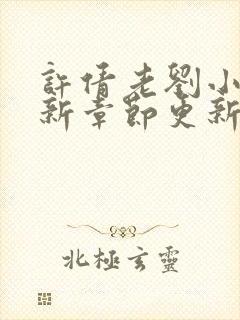 許倩老劉小
新章節更新
北極玄靈